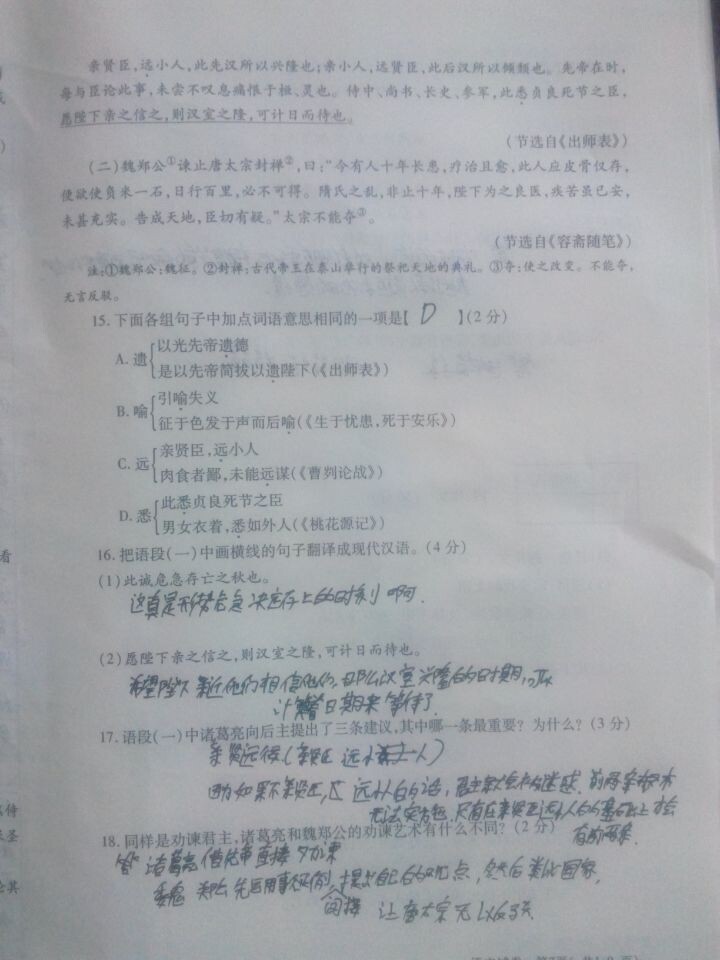 亲贤臣，远小人，此先汉所以兴隆也；亲小人，远贤臣，此后汉所以倾颓也。先帝在时，
每与臣论此事，未尝不叹息痛恨于桓、灵也。侍中、尚书、长史、参军，此悉贞良死节之臣，
愿陛下亲之信之，则汉室之隆，可计日而待也。
（节选自《出师表》）
（二）魏郑公①谏止唐太宗封禅②，曰：“今有人十年长患，疗治且愈，此人应皮骨仅存，
便欲使负米一石，日行百里，必不可得。隋氏之乱，非止十年，陛下为之良医，疾苦虽已安，
未甚充实。告成天地，臣切有疑。”太宗不能夺③。
（节选自《容斋随笔》）
注：①魏郑公：魏征。②封禅：古代帝王在泰山举行的祭祀天地的典礼。③夺：使之改变。不能夺，
无言反驳。
15. 下面各组句子中加点词语意思相同的一项是【 D 】(2分)
A. 遗
以光先帝遗德
是以先帝简拔以遗陛下(《出师表》)
B. 喻
引喻失义
征于色发于声而后喻(《生于忧患，死于安乐》)
C. 远
亲贤臣，远小人
肉食者鄙，未能远谋(《曹刿论战》)
D. 悉
此悉贞良死节之臣
男女衣着，悉如外人(《桃花源记》)
16. 把语段(一)中画横线的句子翻译成现代汉语。(4分)
(1)此诚危急存亡之秋也。
这真是形势危急 决定存亡的时刻啊.
(2)愿陛下亲之信之，则汉室之隆，可计日而待也。
希望陛下亲近他们相信他们，那么汉室兴隆的时期，可以
计算着日期来等待了
17. 语段(一)中诸葛亮向后主提出了三条建议，其中哪一条最重要？为什么？(3分)
亲贤远佞（亲贤臣 远小人）
因为如果不亲贤臣，远小人的话，君主就会被迷惑
无法实施，只有在亲贤臣远小人的基础上才会
18. 同样是劝谏君主，诸葛亮和魏郑公的劝谏艺术有什么不同？(2分)
有前两条.
答 诸葛亮 直接 劝谏
魏 郑公 先运用事例，提出自己的观点，然后类比国家，
间接 让唐太宗无以反驳